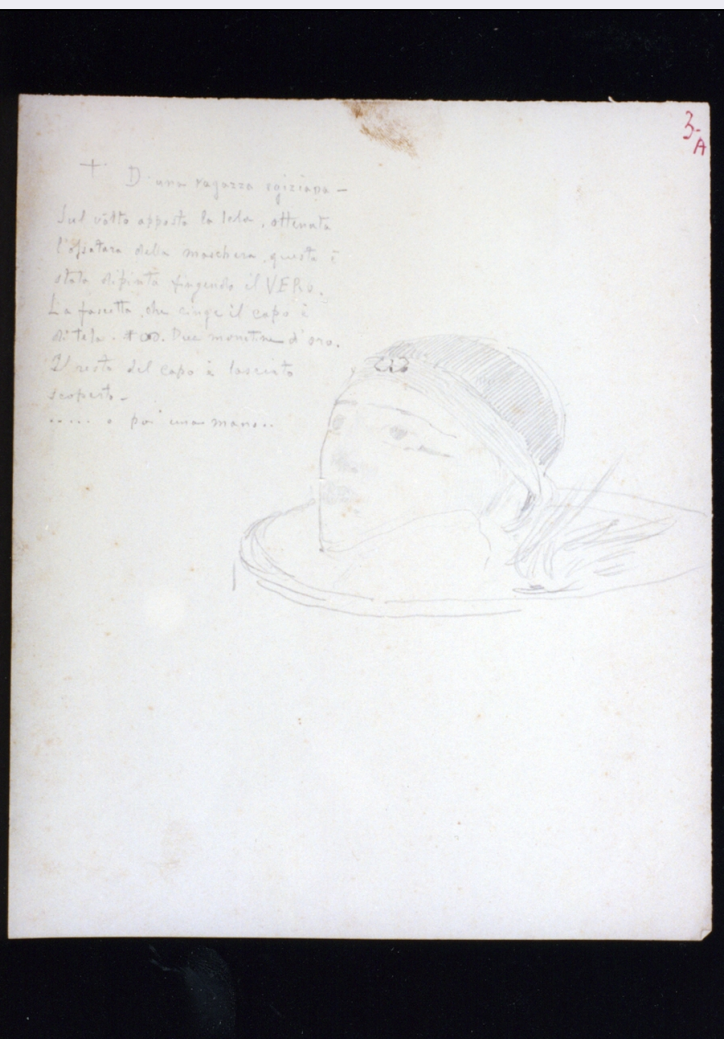 3-A
+ D'una ragazza egiziana -
Sul volto apposta la tela, ottenuta
della maschera, questa è
stata dipinta fingendo il VERO.
La fascetta, che cinge il capo è
di tela. Due monetine d'oro.
Il resto del capo è lasciato
scoperto -
..... e poi una mano..